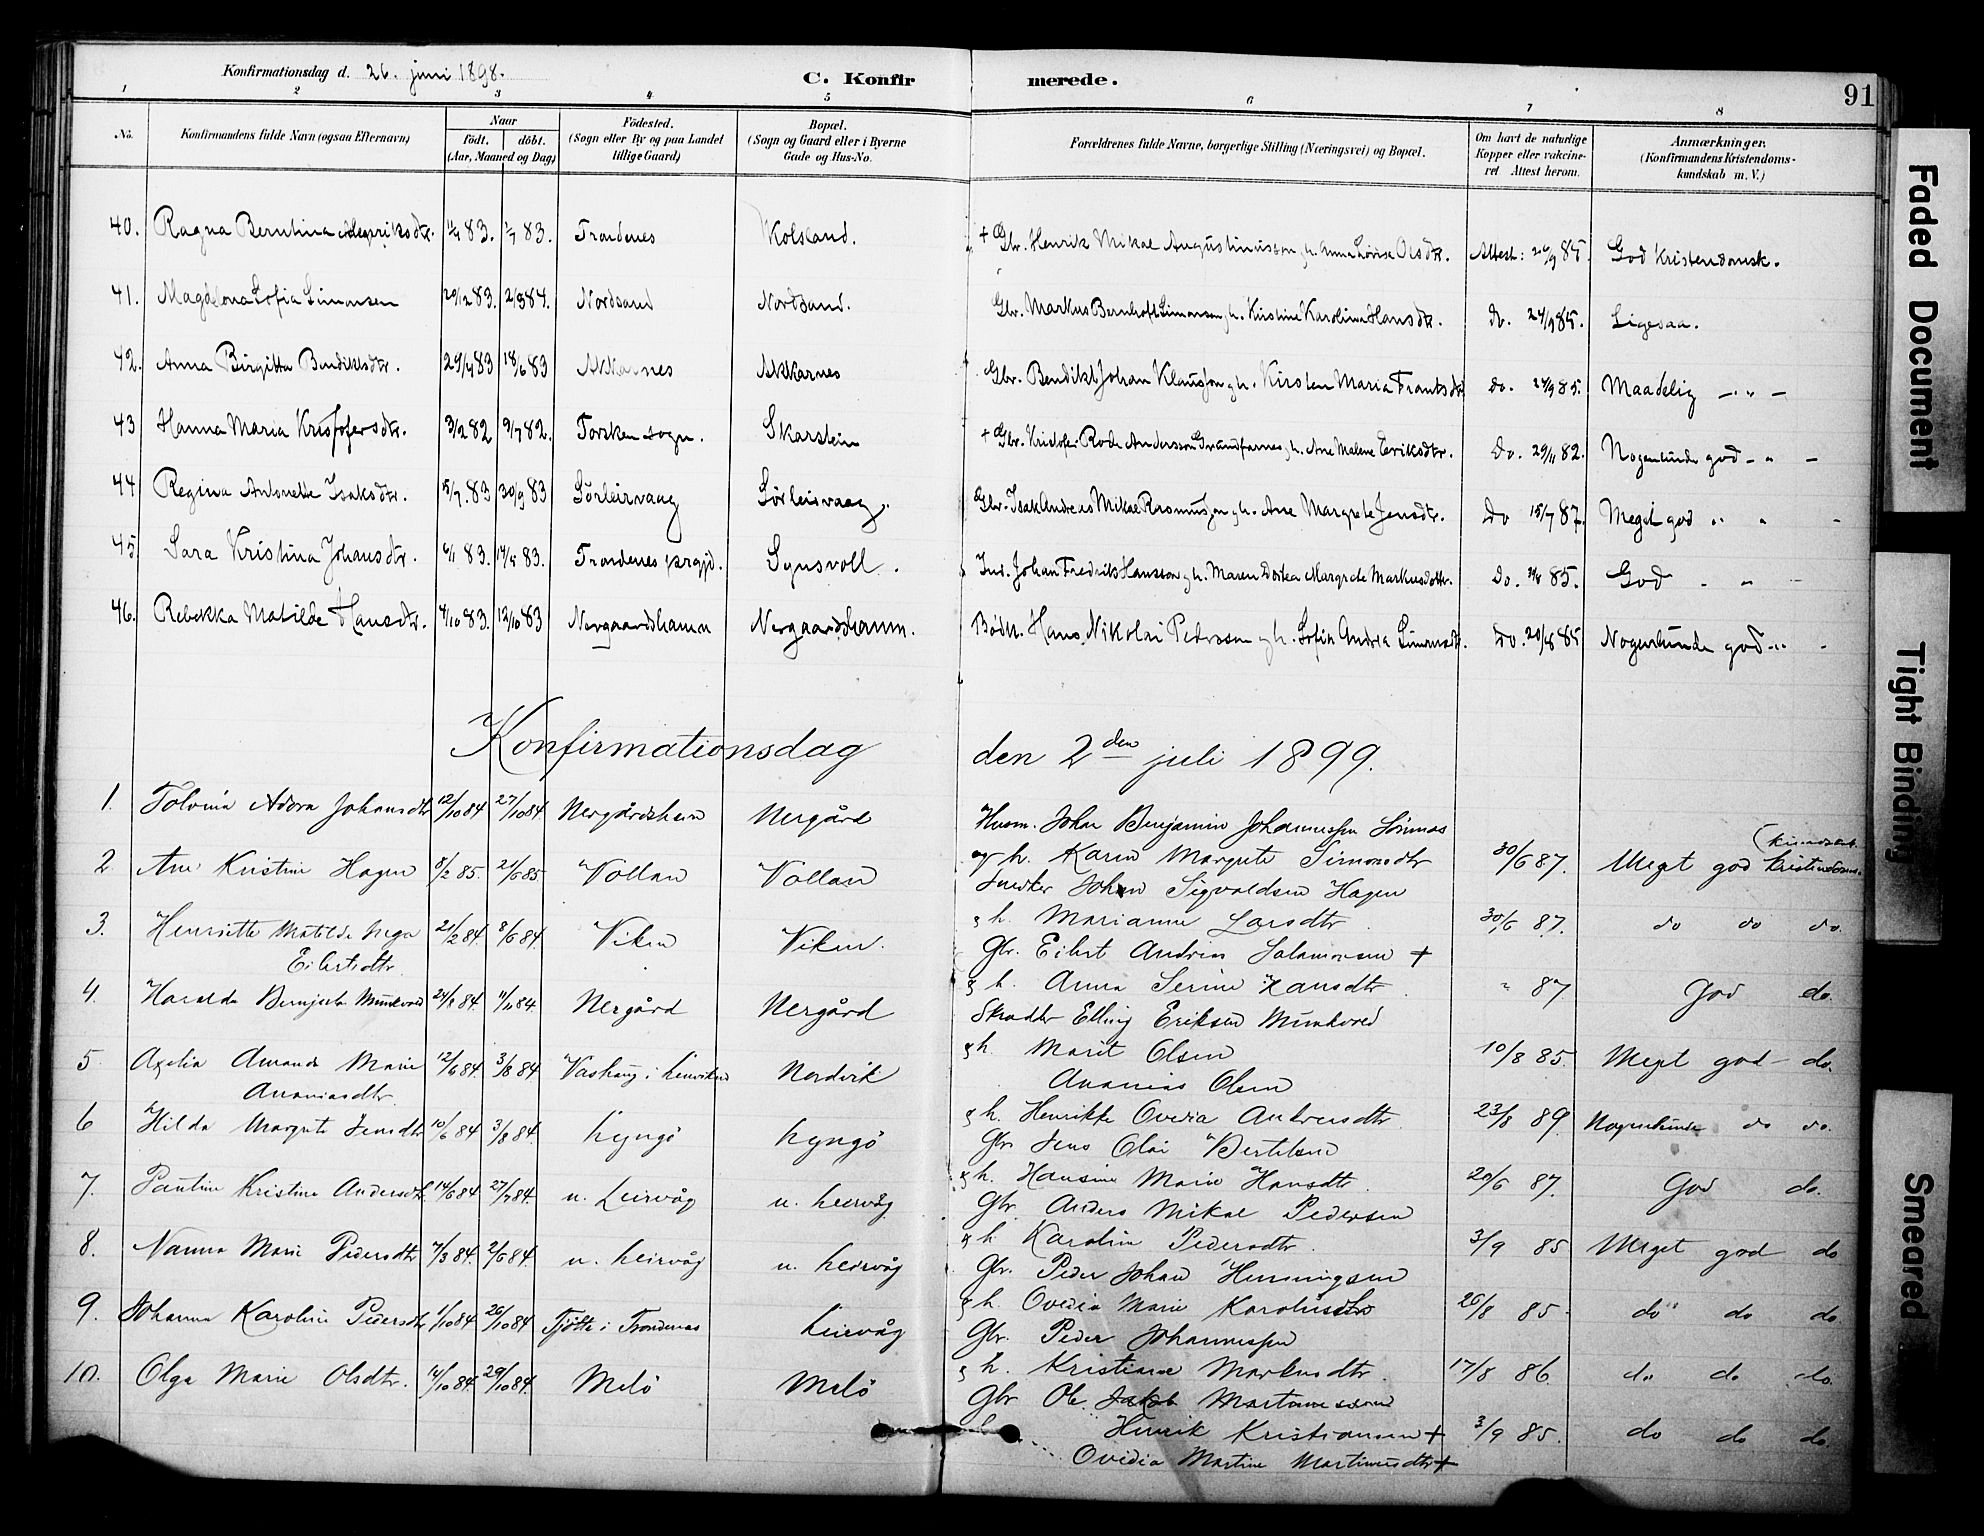 Konfirmationsdag d. 26. juni 1898.
C. Konfir merede.
91
1 2 3 4 5 6 7 8
No. Konfirmandens fulde Navn (ogsaa Efternavn) Naar født. døbt. (Aar, Maaned og Dag) Födested. (Sogn eller By og paa Landet tillige Gaard) Bopæl. (Sogn og Gaard eller i Byerne Gade og Hus-No. Forældrenes fulde Navne, borgerlige Stilling (Næringsvei) og Bopæl. Om havt de naturlige Kopper eller vakcineret Attest herom. Anmærkninger. (Konfirmandens Kristendomskundskab m. V.)
40. Ragna Berntina Henriksdtr. 83. 83. Trondenes Kolsland. + Gbr. Henrik Mikal Augustinussøn Anna Lovise Olsdtr. Attest: 85. God Kristendomsk.
41. Magdelena Sofia Simonsen 20/12 83. 2/3 84. Nordsand Nordsand. Gbr. Markus Bernhoft Simonsen h. Kirstine Karolina Hansdtr. do. 24/9 85. Ligesaa.
42. Anna Birgitta Bendiktsdtr. 29/4 83 18/6 83 Akkarnes Akkarnes Gbr. Bendikt Johan Klausson h. Kirsten Maria Frantsdtr do. 24/9 85. Maadelig — " —
43 Hanna Maria Kristofersdtr. 3/2 82 9/7 82. Torsken sogn. Skarstein + Gbr. Kristofer Rode Anderssen Grundfarnes h. Ane Malene Eriksdtr. do. 29/11 82. Nogenlunde god - " -
44 Regina Antonette Isaksdtr. 15/7 83 30/9 83 Sörleirvaag Sörleirvaag. Gbr. Isak Andreas Mikal Rasmusson h. Ane Margrete Jensdtr. do 15/7 87. Meget god " " -
45. Sara Kristina Johansdtr. 83. 83. Trondenes prgjd. Synsvoll. Ind. Johan Fredrik Hansson h. Maren Dorka Margrete Markusdottr. do. 85. God - " -
46. Rebekka Matilde Hansdtr. 4/10 83. 12/10 83 Nergaardshamn Nergaardshamn. Hans Nikolai Pedersson h. Sofie Andrea Simonsdtr. do. 20/8 85 Nogenlunde god " -
Konfirmationsdag den 2den juli 1899.
1. Tolvina Adora Johansdtr 12/10 84 27/10 84 Nergårdshavn Nergård Husm. Johan Benjamin Johannessen
og h. Karen Margrete Simonsdtr 30/6 87. Meget god kristendoms- (kundskab.
2. Ane Kristine Hagen 8/2 85. 21/6 85 Vollan Vollan Snedker Johan Sigvaldsen Hagen
h. Marianne Larsdtr 30/6 87. do do do.
3. Henriette Matilde Inga Eilertsdtr. 21/2 84. 8/6 84. Viken Viken. Gbr. Eilert Andreas Salamonsen +
h. Anna Serine Hansdtr. " 87 God do.
4. Haralda Munkvord 24/8 84. 84. Nergård Nergård Skradder Elling Eriksen Munkvord
h. Marit Olsen 10/8 85. Meget god do.
5. Axelia Amanda Marie Ananiasdtr. 12/6 84. 3/8 84 Vashaug i Lenviken Nordvik Ananias Olsen
h. Henrikke Ovedia Andersdtr. 23/8 89. Nogenlunde do do.
6 Hilda Margrete Jensdtr 10/6 84 3/8 84. Lyngö Lyngö Gbr Jens Olai Bertelsen
h. Hansine Marie Hansdtr. 20/6 87. God do.
7. Pauline Kristine Andersdtr. 14/6 84 27/7 84. n. Leirvåg n. Leirvåg Gbr. Anders Mikal Pedersen
h. Karoline Pedersdtr. 3/9 85 Meget god do
8. Nanna Marie Pedersdtr. 7/3 84. 2/6 84. n. Leirvåg n. Leirvåg Gbr. Peder Johan Henningsen
h. Ovedia Marie Karolusdtr 26/8 85. do do do
9. Johanna Karoline Pedersdtr 1/10 84 26/10 84 Tjötta i Trondenes Leirvåg Gbr. Peder Johannessen
h. Kristiane Markusdtr. 17/8 86. do do do.
10. Olga Marie Olsdtr. 14/10 84. 29/10 84. Melö Melö Gbr Ole Jakob
Henrik Kristiansen + 3/9 85. do do do.
Ovedia Martine Martinusdtr +
Faded Document
Tight Binding
Smeared